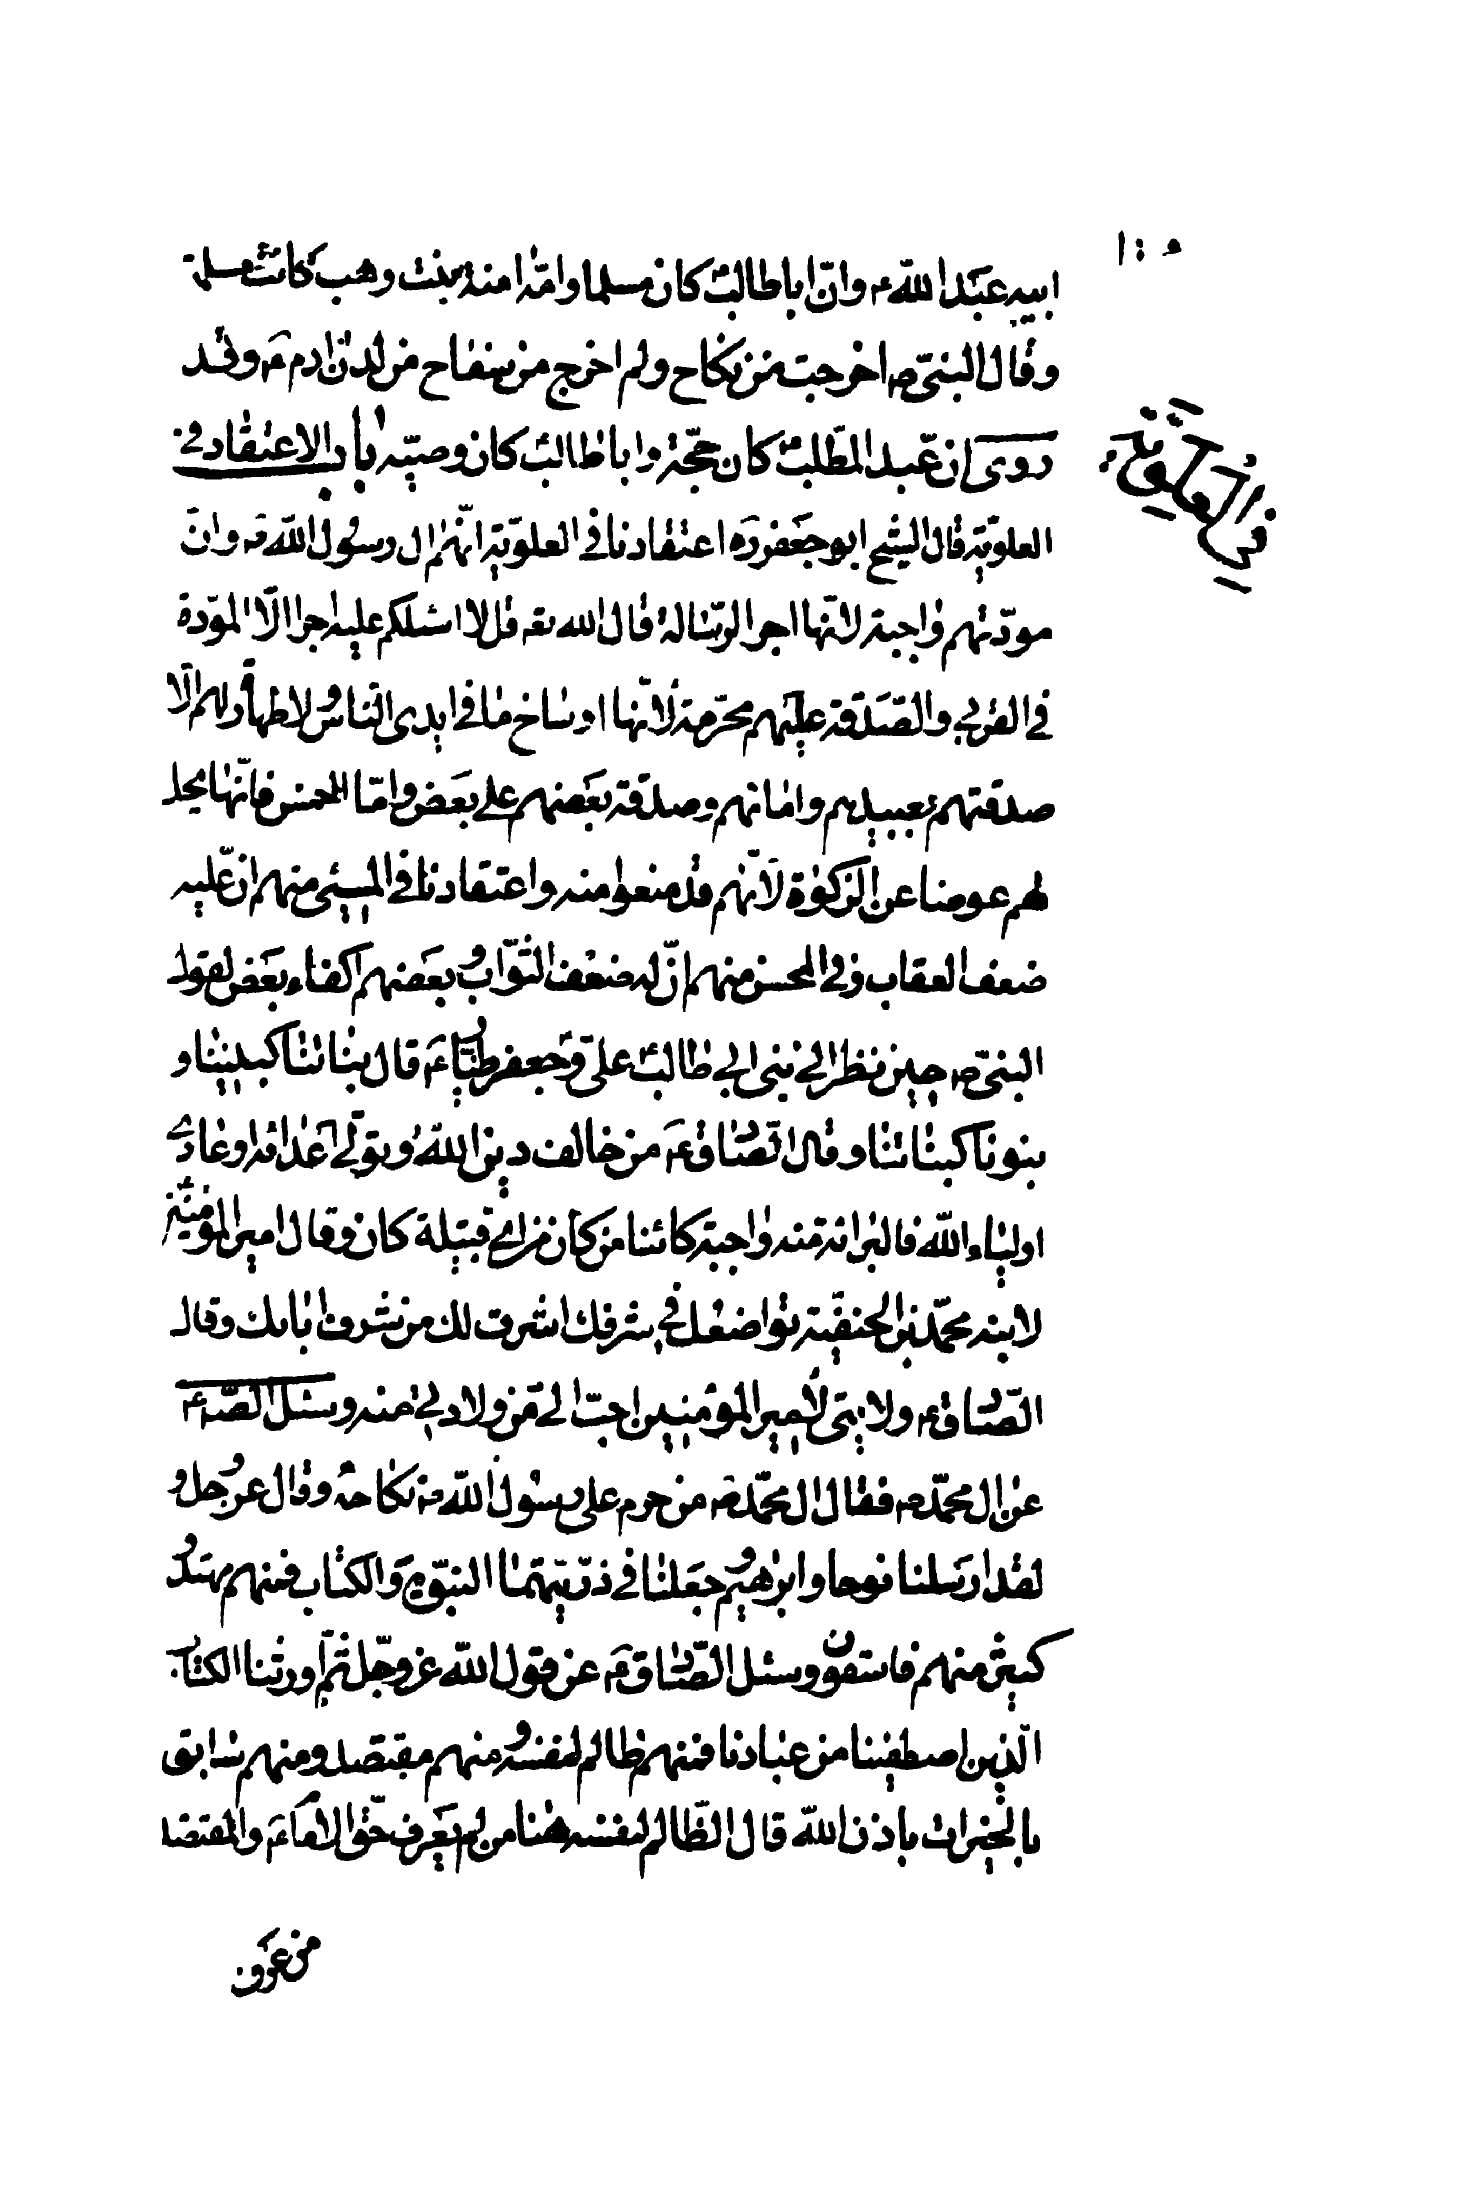 ١٠٥
ابيه عبد الله ع وانّ ابا طالب كان مسلما وامّه امنة بنت وهب كانت مسلمة
وقال النبيّ ص اخرجت من نكاح ولم اخرج من سفاح من لدن ادم ع وقد
روى ان عبد المطّلب كان حجّة وابا طالب كان وصيّه باب الاعتقاد في
في العلويّة
العلويّة قال الشيخ ابو جعفر ره اعتقادنا في العلويّة انّهم ال رسول الله ص وانّ
مودّتهم واجبة لانّها اجر الرّسالة قال الله تعه قل لا اسئلكم عليه اجرا الّا المودّة
في القربى والصّدقة عليهم محرّمة لانّها اوساخ ما في ايدى النّاس وطهارة لهم الّا
صدقتهم لعبيدهم وامائهم وصدقة بعضهم على بعض وامّا الخمس فانّها يحل
لهم عوضا عن الزكوة لانّهم قد منعوا منه واعتقادنا في المسيئ منهم ان عليه
ضعف العقاب وفي المحسن منهم انّ له ضعف الثّواب وبعضهم اكفاء بعض لقول
النبيّ ص حين نظر الى بنى ابي طالب علي وجعفر طيّار ع قال بناتنا كبنينا و
بنونا كبناتنا وقال الصّادق ع من خالف دين الله وتولّى اعدائه او عادى
اولياء الله فالبرائة منه واجبة كائنا من كان من اى قبيلة كان وقال امير المؤمنين
لابنه محمّد بن الحنفيّة تواضعك في شرفك اشرف لك من شرف ابائك وقال
الصّادق ع ولايتى لامير المؤمنين احبّ الىّ من ولادتي منه وسئل الصّ ع
عن ال محمّد ص فقال ال محمّد ص من حرم على رسول الله ص نكاحه وقال عز وجل و
لقد ارسلنا نوحا وابرهيم وجعلنا في ذرّيّتهما النبوّة والكتاب فمنهم مهتد و
كثير منهم فاسقون وسئل الصّادق ع عن قول الله عز وجلّ ثمّ اورثنا الكتاب
الّذين اصطفينا من عبادنا فمنهم ظالم لنفسه ومنهم مقتصد ومنهم سابق
بالخيرات باذن الله قال الظّالم لنفسه هنا من لم يعرف حقّ الامام ع والمقتصد
من عرف